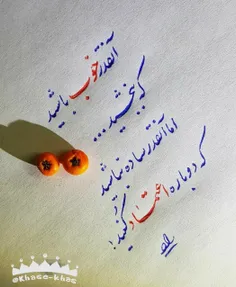 آنقدر خوب باشید
که ببخشید...
اما آنقدر ساده نباشید
که دوباره اعتماد کنید!
@Khase-khas